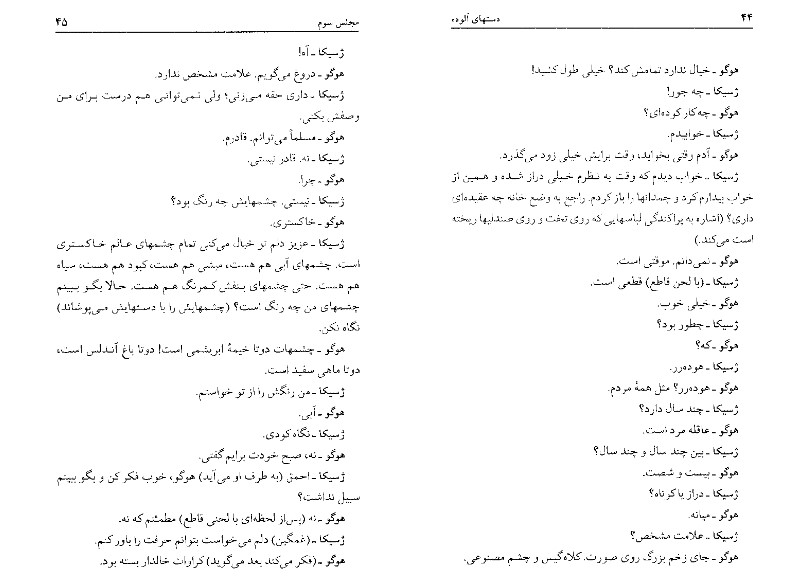 ۴۴
دستهای آلوده
هوگو ـ خیال ندارد تمامش کند؟ خیلی طول کشید!
ژسیکا ـ چه جور!
هوگو ـ چه‌کار کرده‌ای؟
ژسیکا ـ خوابیدم.
هوگو ـ آدم وقتی بخوابد، وقت برایش خیلی زود می‌گذرد.
ژسیکا ـ خواب دیدم که وقت به نظرم خیلی دراز شده و همین از
خواب بیدارم کرد و چمدانها را باز کردم. راجع به وضع خانه چه عقیده‌ای
داری؟ (اشاره به پراکندگی لباسهایی که روی تخت و روی صندلیها ریخته
است می‌کند.)
هوگو ـ نمی‌دانم. موقتی است.
ژسیکا ـ (با لحن قاطع) قطعی است.
هوگو ـ خیلی خوب.
ژسیکا ـ چطور بود؟
هوگو ـ که؟
ژسیکا ـ هوده‌رر.
هوگو ـ هوده‌رر؟ مثل همهٔ مردم.
ژسیکا ـ چند سال دارد؟
هوگو ـ عاقله مرد است.
ژسیکا ـ بین چند سال و چند سال؟
هوگو ـ بیست و شصت.
ژسیکا ـ دراز یا کوتاه؟
هوگو ـ میانه.
ژسیکا ـ علامت مشخص؟
هوگو ـ جای زخم بزرگ روی صورت. کلاه‌گیس و چشم مصنوعی.
مجلس سوم
۴۵
ژسیکا ـ آه!
هوگو ـ دروغ می‌گویم. علامت مشخص ندارد.
ژسیکا ـ داری حقه می‌زنی؛ ولی نمی‌توانی هم درست برای من
وصفش بکنی.
هوگو ـ مسلماً می‌توانم. قادرم.
ژسیکا ـ نه. قادر نیستی.
هوگو ـ چرا.
ژسیکا ـ نیستی. چشمهایش چه رنگ بود؟
هوگو ـ خاکستری.
ژسیکا ـ عزیز دلم تو خیال می‌کنی تمام چشمهای عالم خاکستری
است. چشمهای آبی هم هست، میشی هم هست، کبود هم هست، سیاه
هم هست. حتی چشمهای بنفش کمرنگ هم هست. حالا بگو ببینم
چشمهای من چه رنگ است؟ (چشمهایش را با دستهایش می‌پوشاند)
نگاه نکن.
هوگو ـ چشمهات دوتا خیمهٔ ابریشمی است! دوتا باغ آندلس است،
دوتا ماهی سفید است.
ژسیکا ـ من رنگش را از تو خواستم.
هوگو ـ آبی.
ژسیکا ـ نگاه کردی.
هوگو ـ نه، صبح خودت برایم گفتی.
ژسیکا ـ احمق (به طرف او می‌آید) هوگو، خوب فکر کن و بگو ببینم
سبیل نداشت؟
هوگو ـ نه (پس‌از لحظه‌ای با لحنی قاطع) مطمئنم که نه.
ژسیکا ـ (غمگین) دلم می‌خواست بتوانم حرفت را باور کنم.
هوگو ـ (فکر می‌کند بعد می‌گوید) کراوات خالدار بسته بود.